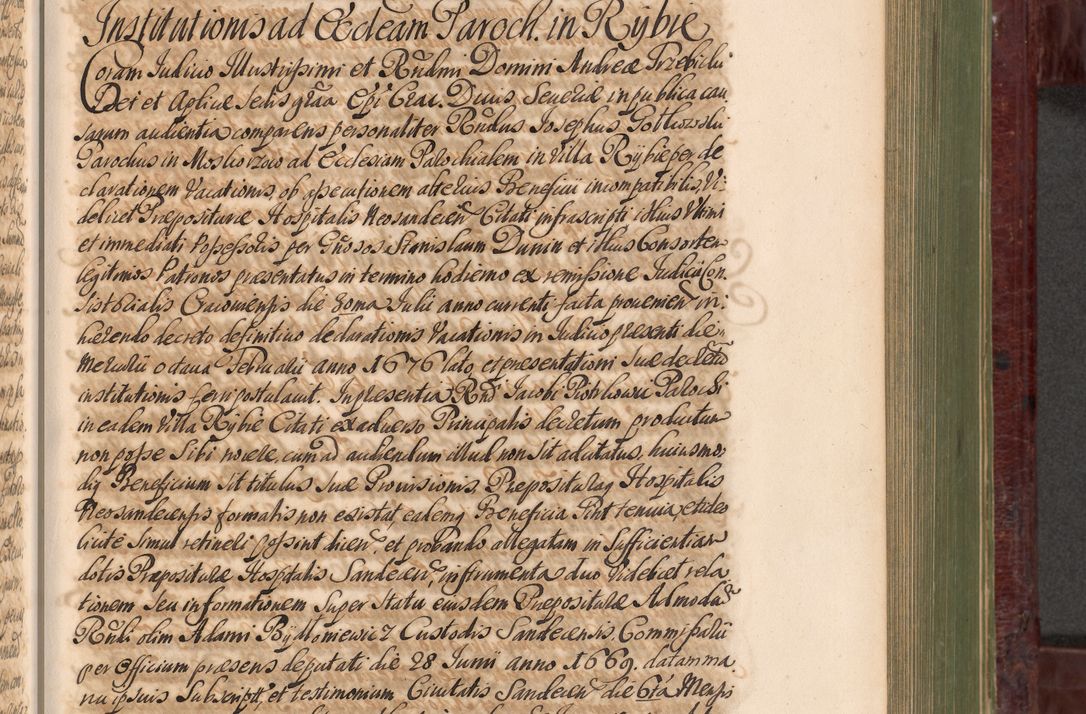 Institutionis ad Eccleam Paroch. in Rybie
Coram Judicio Illustrissimi et Rndmi Domini Andreæ Trzebicki
Dei et Aplicæ Sedis graa Epi Crac. Ducis Severiæ in publica cau
sarum audientia comparens personaliter Rndus Josephus
Parochus in ad Ecclesiam Parochialem in Villa Rybie per de
clarationem Vacationis, ob assecutionem alterius Beneficii incompatibilis, Vi
delicet Præpositure Hospitalis Neosandecen Citati infrascripti illius Ultimi
et immediati Possessoris per Gnosos Stanislaum Dunin et illius Consortem
legitimos Patronos præsentatus in termino hodierno ex remissione Judicii Con
sistorialis Cracoviensis die Julii anno currenti facta provenien in
hærendo decreto definitivo declarationis Vacationis in Judicio præsenti die
Mercurii octava Februarii anno 1676 lato, et præsentationi suæ decretum
institutionis ferri postulavit. In præsentia Rndi Jacobi Piotrkowicz Parochi
in eadem Villa Rybie Citati ex adverso Principalis decretum productum
non posse Sibi nocere, cum ad audiendum illud non sit citatus, huiusmo
di Beneficium sit titulus suæ Provisionis, Præpositurag Hospitalis
Neosandecensis formalis non existat eademq Beneficia sint tenuia, et ideo
licite simul retineri possint dicen. et probando allegatam in Sufficientiam
dotis Præpositure Hospitalis Sandecen. instrumenta duo Videlicet rela
tionem seu informationem super statu eiusdem Præpositure Admodu
Rndi olim Adami Bydłoniewicz Custodis Sandecensis, Commissarii
per Officium præsens deputati die 28 Junii anno 1669. datam ma
nu ipsius Subscript, et testimonium Civitatis Sandecen die 6ta Mensis